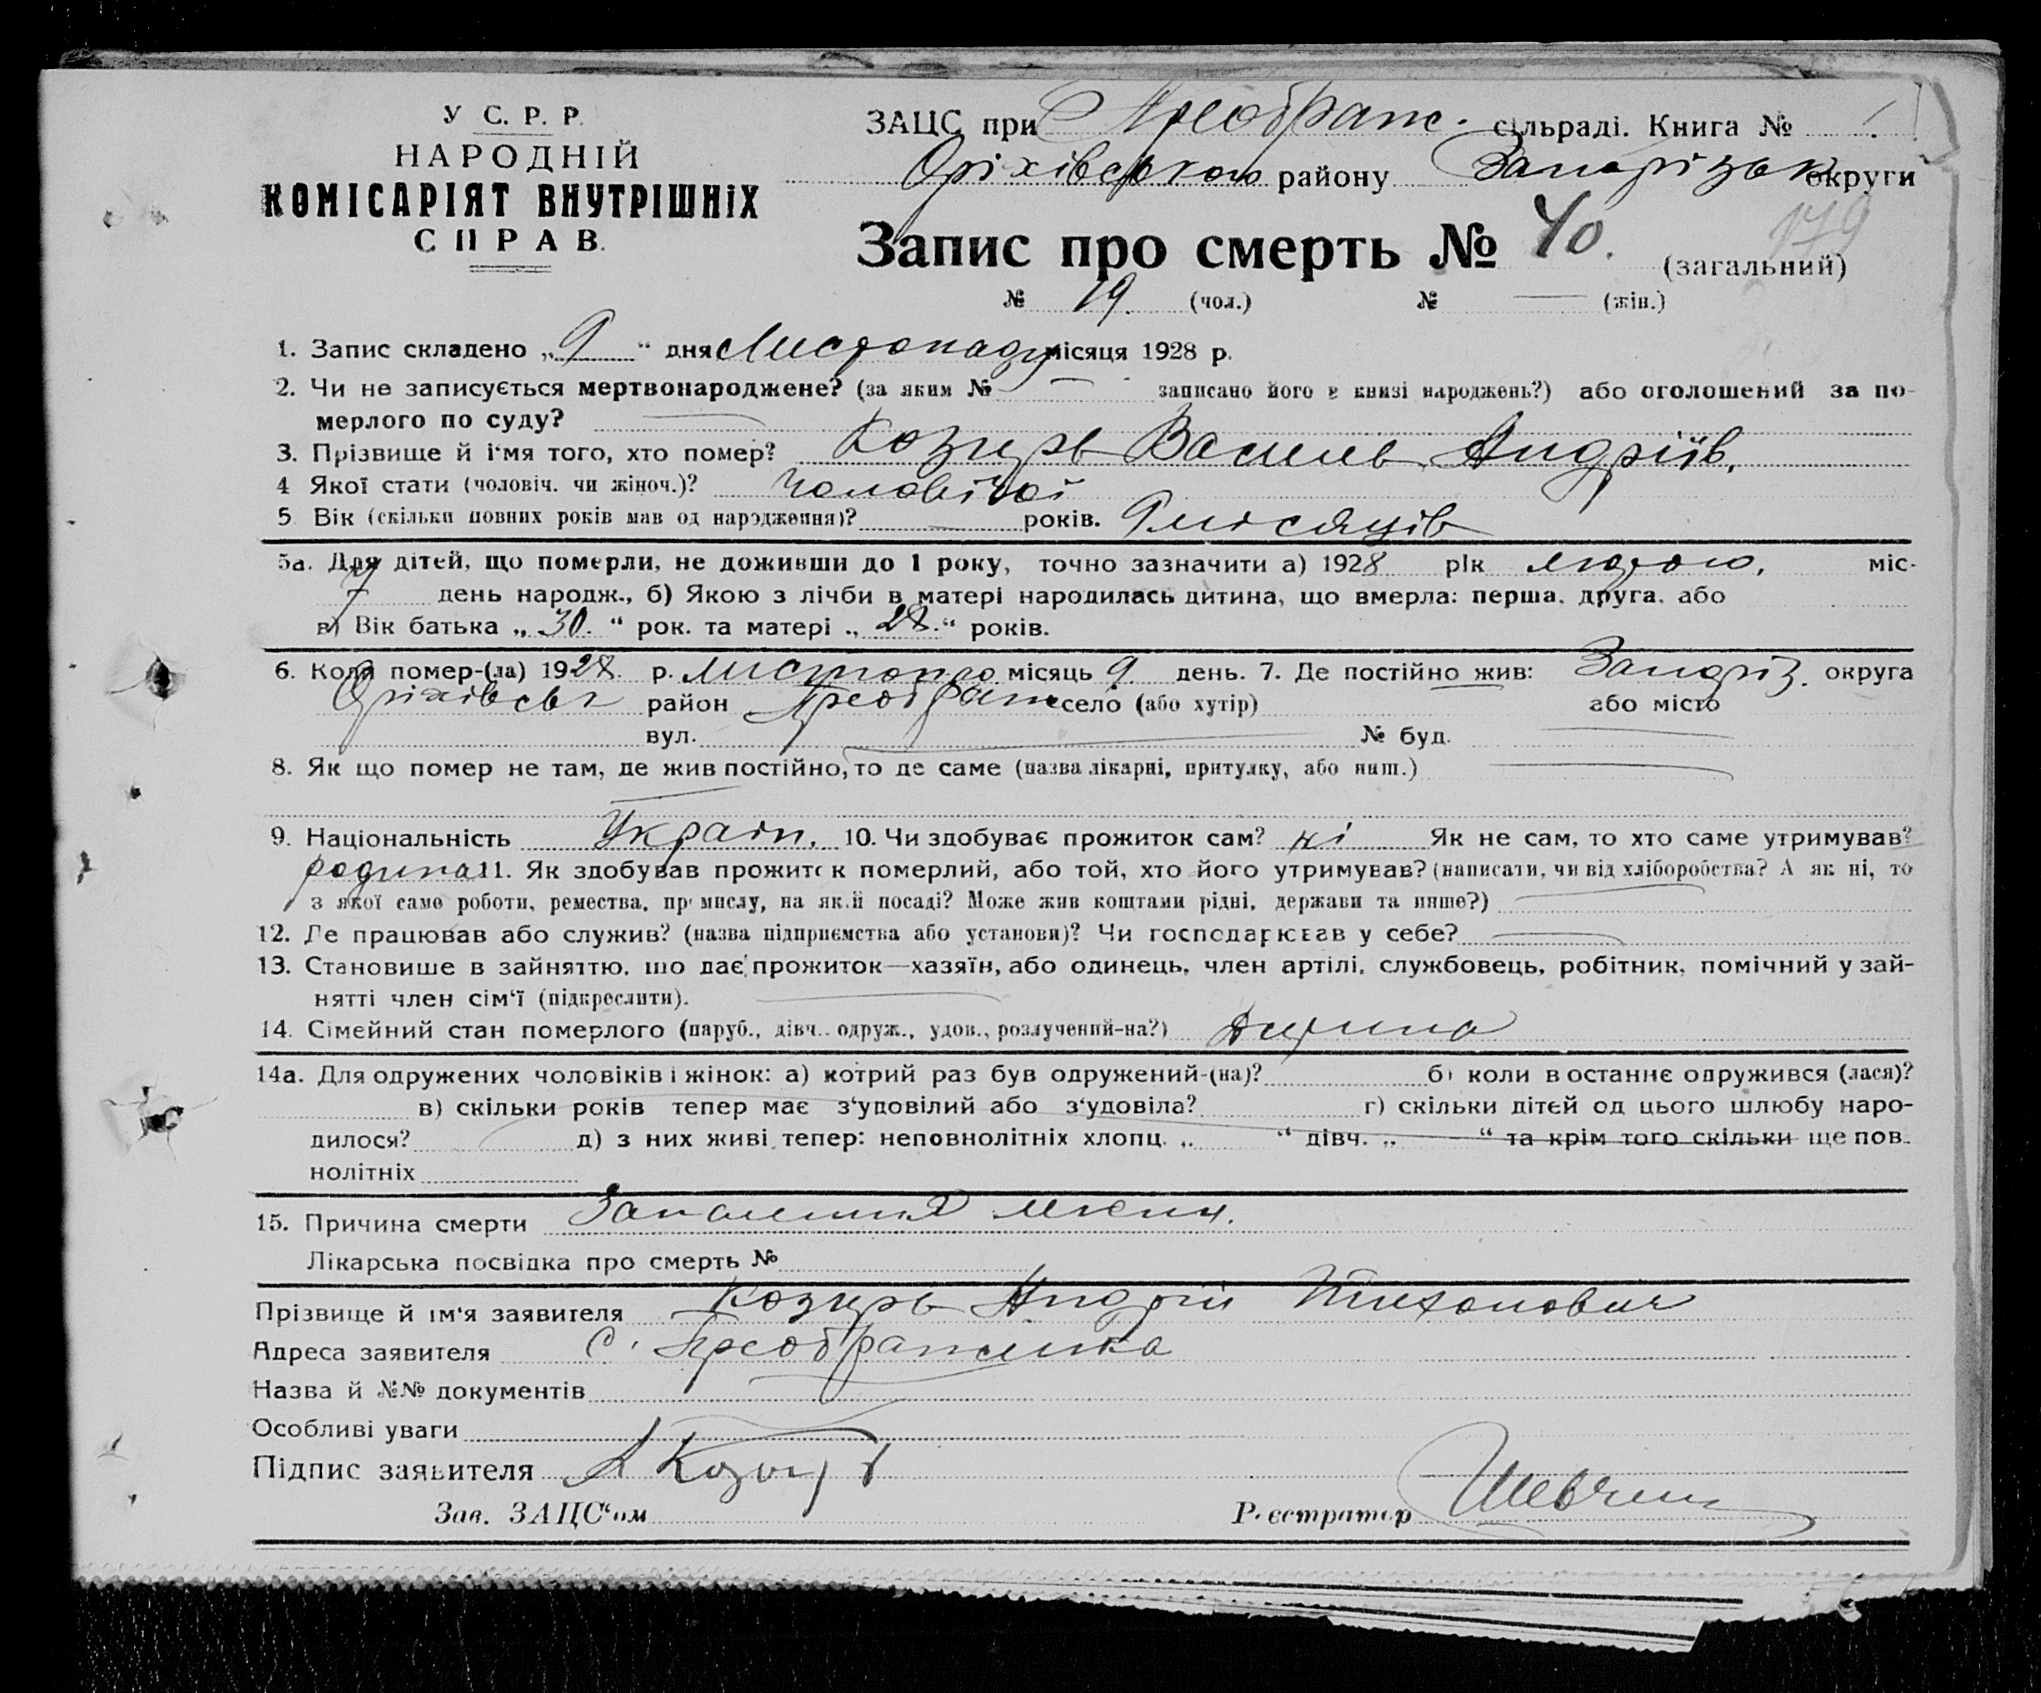 У С. Р. Р.
НАРОДНІЙ
КОМІСАРІЯТ ВНУТРІШНІХ
СПРАВ.
ЗАЦС при Преображ. сільраді. Книга № 1
Оріхівського району Запорізьк округи
Запис про смерть № 40. (загальний)
179
№ 19. (чол.) № — (жін.)
1. Запис складено „ 9 “ дня Листопаду місяця 1928 р.
2. Чи не записується мертвонароджене? (за яким № — записано його в книзі народжень?) або оголошений за по-
мерлого по суду? —
3. Прізвище й ім'я того, хто помер? Козирь Василь Андріїв.
4 Якої стати (чоловіч. чи жіноч.)? Чоловічої
5 Вік (скільки повних років мав од народження)? — років. 9 місяців
5а. Для дітей, що померли, не доживши до 1 року, точно зазначити а) 1928 рік лютого, міс-
7 день народж., б) Якою з лічби в матері народилась дитина, що вмерла: перша, друга, або
в) Вік батька „ 30. “ рок. та матері „ 28. “ років.
6. Коли помер-(ла) 1928 р. листопад місяць 9 день. 7. Де постійно жив: Запоріз. округа
Оріхівськ район Преображ село (або хутір) або місто —
вул. — № буд. —
8. Як що помер не там, де жив постійно, то де саме (назва лікарні, притулку, або инш.) —
9. Національність Україн. 10. Чи здобуває прожиток сам? ні Як не сам, то хто саме утримував?
родина 11. Як здобував прожиток померлий, або той, хто його утримував? (написати, чи від хліборобства? А як ні, то
з якої саме роботи, ремества, промислу, на якій посаді? Може жив коштами рідні, держави та инше?) —
12. Де працював або служив? (назва підприємства або установи)? Чи господарював у себе? —
13. Становище в зайняттю, що дає прожиток—хазяїн, або одинець, член артілі, службовець, робітник, помічний у зай-
нятті член сім'ї (підкреслити). —
14. Сімейний стан померлого (паруб., дівч., одруж., удов., розлучений-на?) Дитина
14а. Для одружених чоловіків і жінок: а) котрий раз був одружений-(на)? б) коли в останнє одружився (лася)?
в) скільки років тепер має з'удовілий або з'удовіла? г) скільки дітей од цього шлюбу наро-
дилося? д) з них живі тепер: неповнолітніх хлопц. „ “ дівч. „ “ та крім того скільки ще пов-
нолітніх
15. Причина смерти Запалення легень.
Лікарська посвідка про смерть №
Прізвище й ім'я заявителя Козирь Андрій Тиханович
Адреса заявителя с. Преображенка
Назва й №№ документів
Особливі уваги
Підпис заявителя А Козирь
Зав. ЗАЦС'ом Реєстратор Шевченк